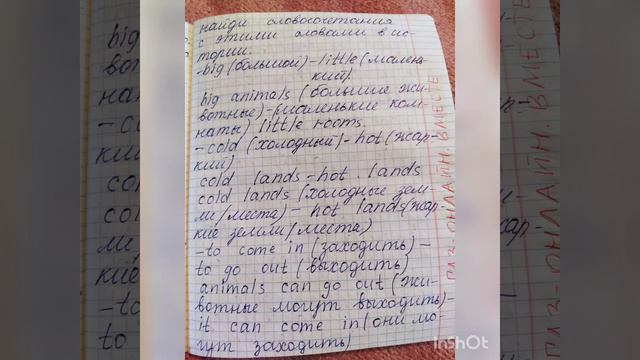 найди словосочетания
с этими словами в ис-
тории.
-big (большой) - little (малень-
кий)
big animals (большие жи-
вотные) - (маленькие ком-
наты) little rooms.
- cold (холодный) - hot (жар-
кий)
cold lands - hot lands
cold lands (холодные зем-
ли/места) - hot lands (жар-
кие земли/места)
- to come in (заходить) -
to go out (выходить)
animals can go out (жи-
вотные могут выходить) -
it can come in (они мо-
гут заходить)
ОНЛАЙН. ВМЕСТЕ
InShOt